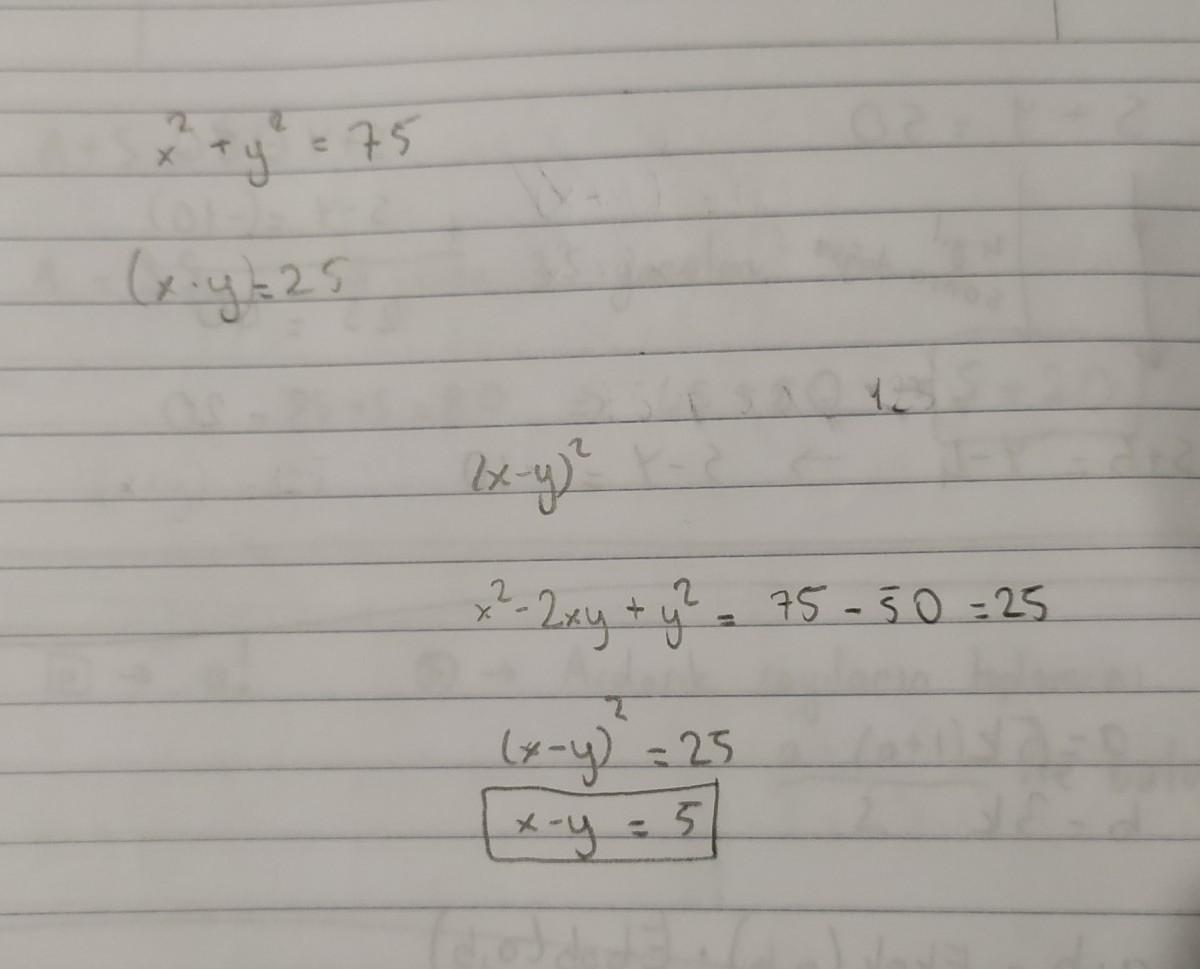 x² + y² = 75
(x·y) = 25
(x-y)²
x² - 2xy + y² = 75 - 50 = 25
(x-y)² = 25
x-y = 5